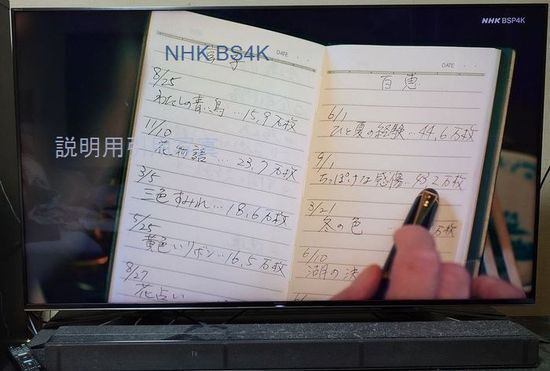 NHK BSP4K
NHK BS4K
説明用
DATE
8/25
わたしの青い鳥…15,9万枚
11/10
花物語…23,7万枚
3/5
三色すみれ…18,6万枚
5/25
黄色いリボン…16,5万枚
8/27
花占い
DATE
百恵
6/1
ひと夏の経験…44,6万枚
9/1
ちっぽけな感傷…43,2万枚
3/21
冬の色
万枚
6/10
湖の決